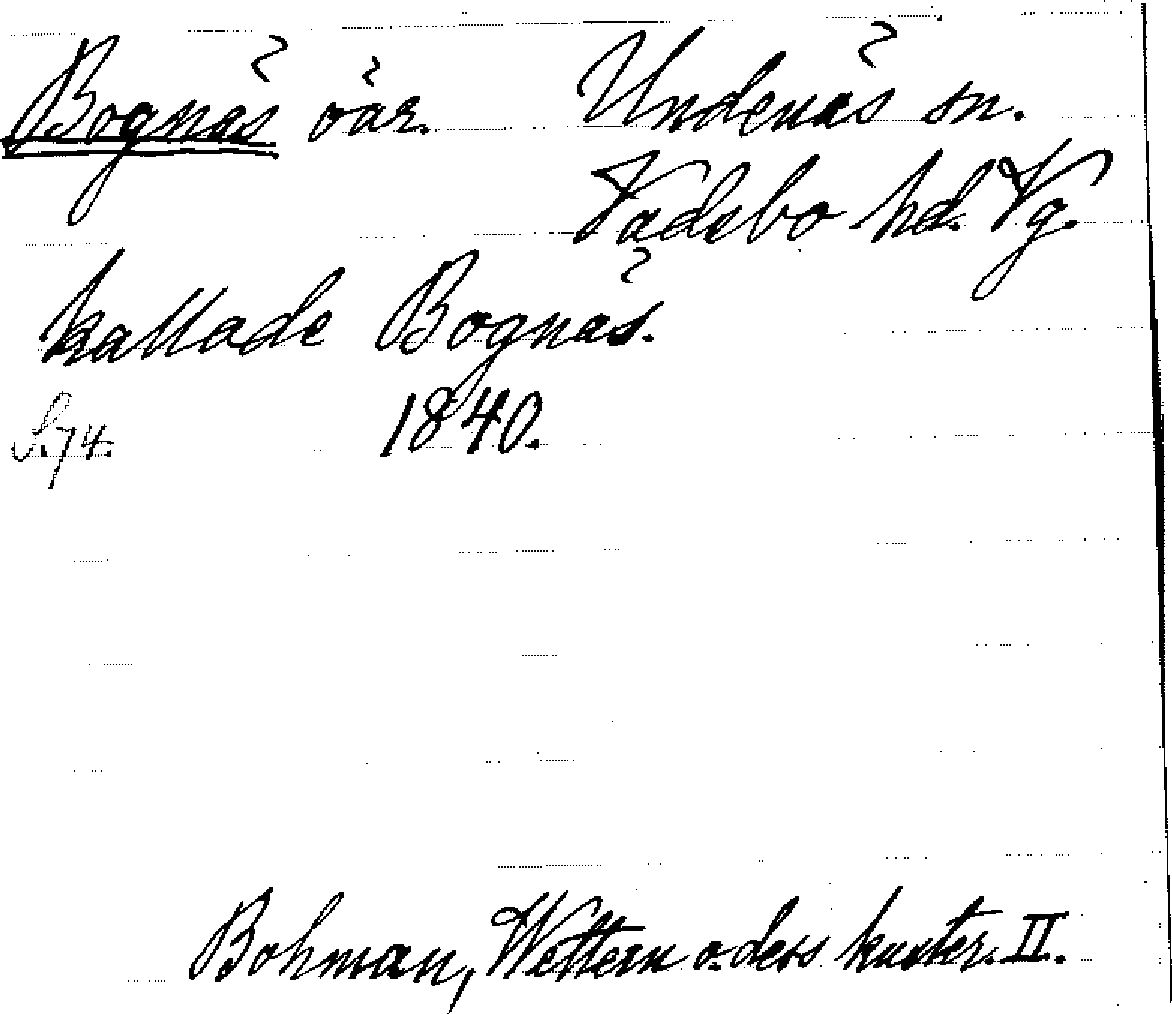 Bognäs öar. Undenäs sn.
Vadsbo hd. Vg.
kallade Bognäs.
S. 74. 1840.
Bohman, Wettern o. dess kuster. II.